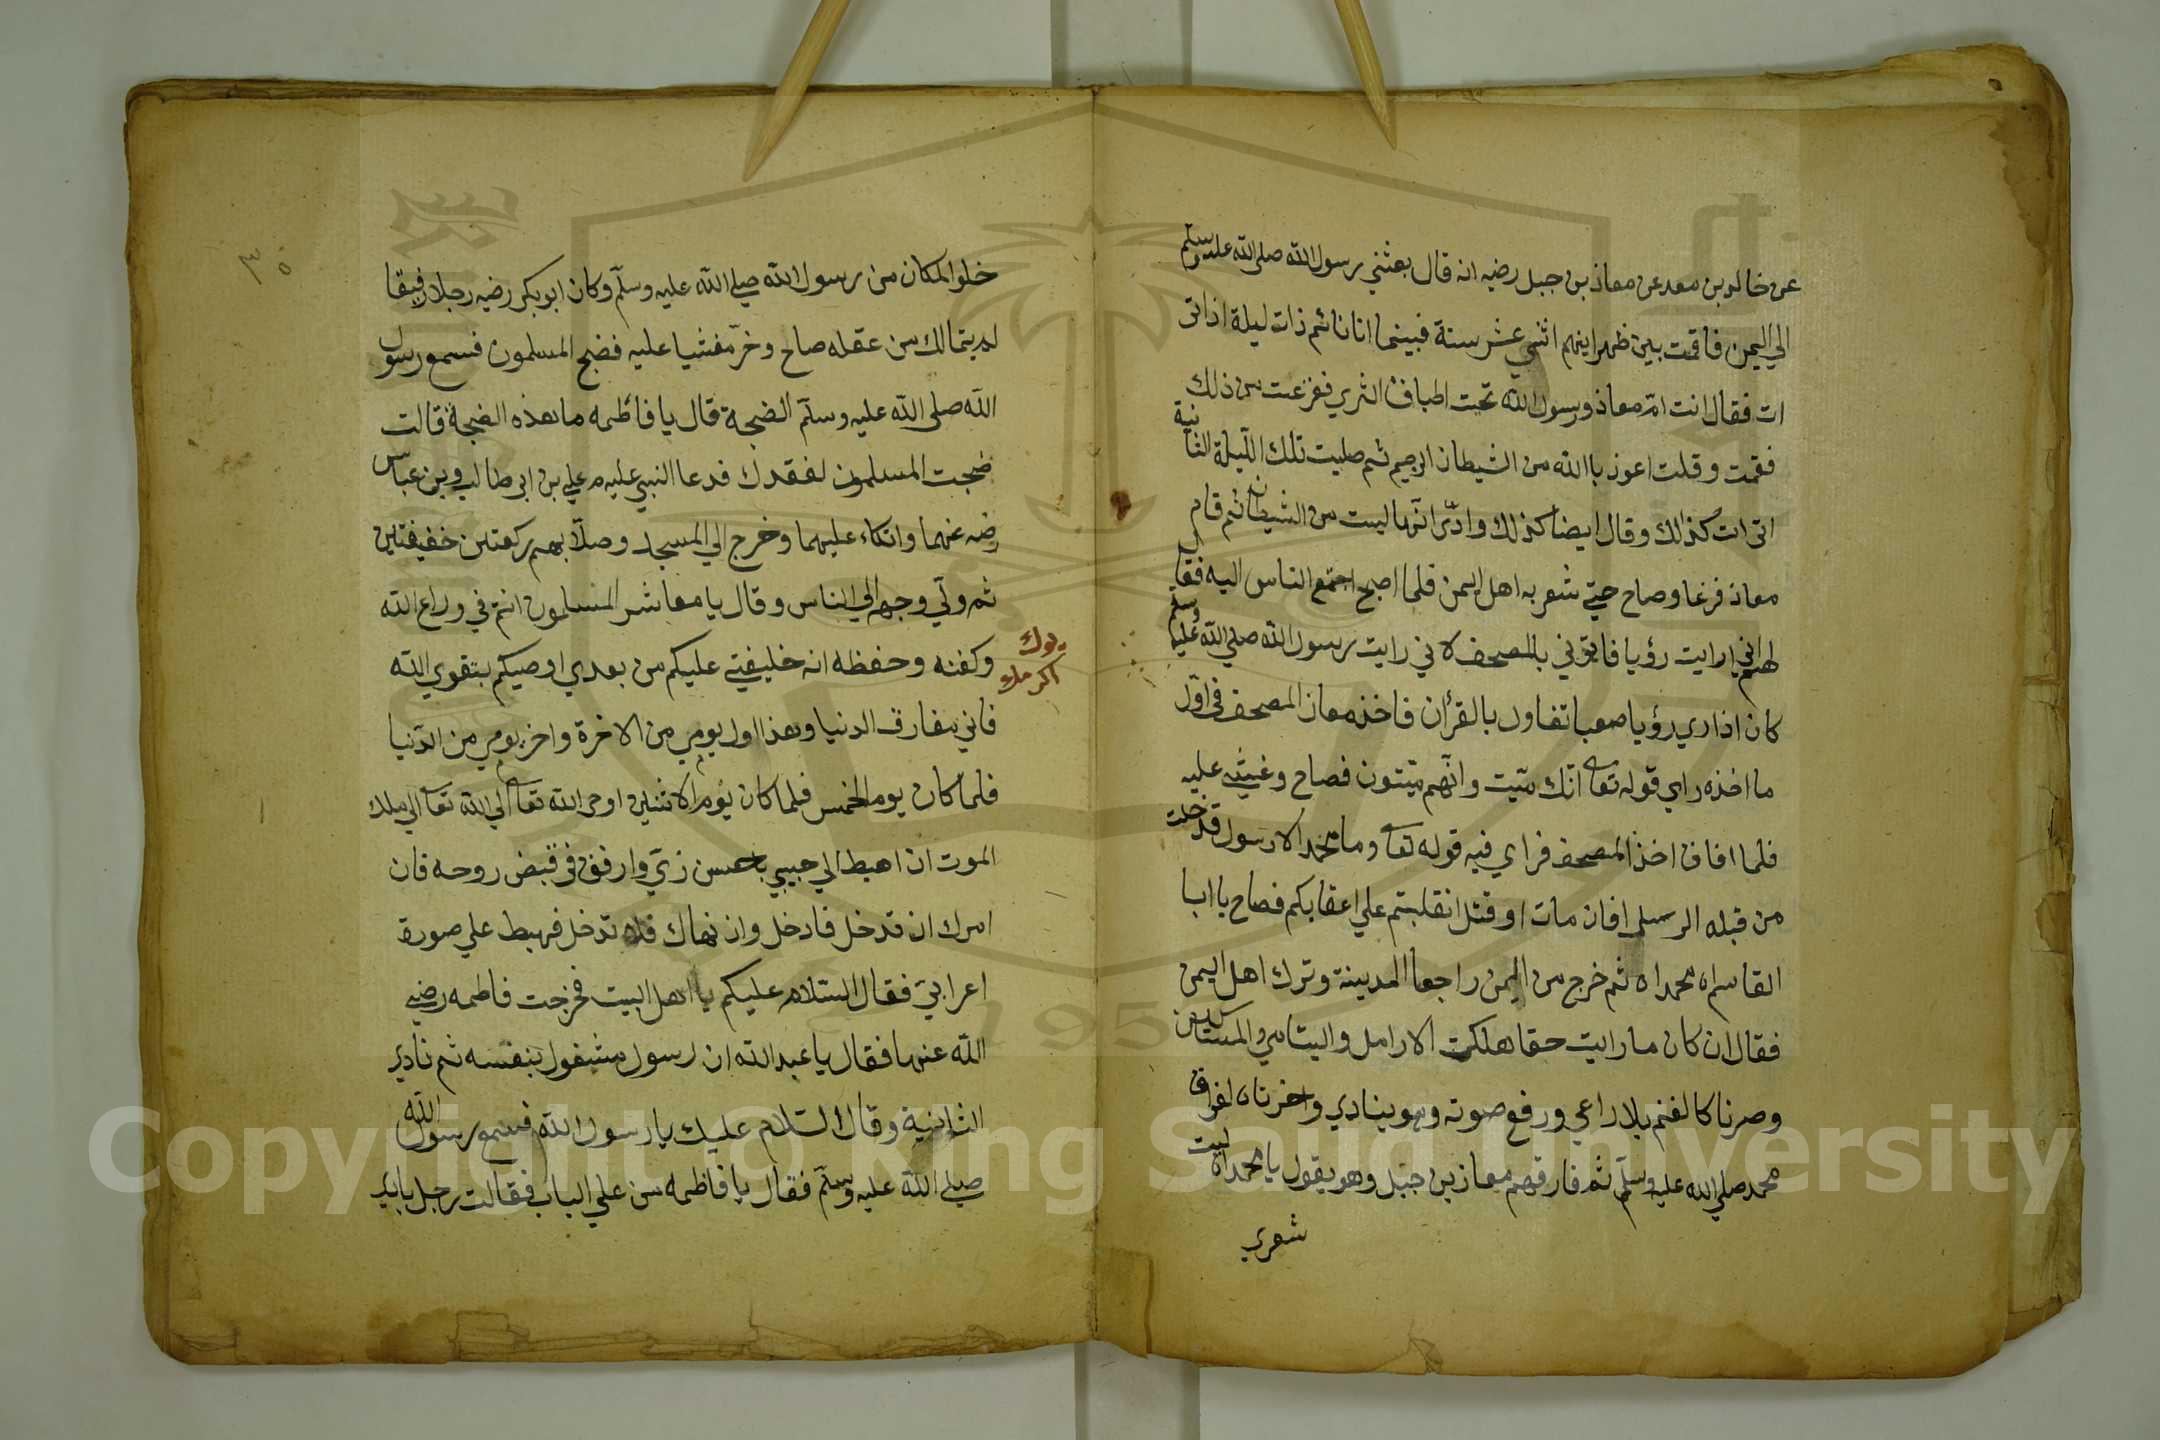 عن خالد بن معد عن معاذ بن جبل رضيه انه قال بعثني رسول الله صلى الله عليه وسلم
الي اليمن فاقمت بين ظهرانيهم اثني عشر سنة فبينما انا نائم ذات ليلة اذ اتى
ات فقال انت ام معاذ ورسول الله تحت اطباق الثري ففزعت من ذلك
فقمت وقلت اعوذ باالله من الشيطان الرجيم ثم صليت تلك الليلة الثانية
اتى ات كذالك وقال ايضا كذلك وادّر انها ليست من الشيطان ثم قام
معاذ فزعا وصاح حتي شعر به اهل اليمن فلما اصبح اجتمع الناس اليه فقال
لهم اني رايت رؤيا فايتوني بالمصحف لاني رايت رسول الله صلي الله عليه وسلم
كان اذا رى رؤيا صعبا تفاول بالقرأن فاخذ معاذ المصحف في اول
ما اخذه راي قوله تعا انك ميت وانهم ميتون فصاح وغشي عليه
فلما افاق اخذ المصحف فراي فيه قوله تعا وما محمد الا رسول قد خلت
من قبله الرسل افان مات او قتل انقلبتم علي اعقابكم فصاح يا ابا
القاسم اه محمداه ثم خرج من اليمن راجعا المدينة وترك اهل اليمن
فقال ان كان ما رايت حقا هلكت الارامل واليتامي والمساكين
وصرنا كالغنم بلا راعي ورفع صوته وهو ينادي واحزناه لفراق
محمد صلي الله عليه وسلم ثم فارقهم معاذ بن جبل وهو يقول يا محمداه ليت
شعري
٣٥
خلو المكان من رسول الله صلي الله عليه وسلم وكان ابو بكر رضيه رجلا رقيقا
لم يتمالك من عقله صاح وخر مغشيا عليه فضج المسلمون فسمع رسول
الله صلى الله عليه وسلم الضجة قال يا فاطمه ما هذه الضجة قالت
ضجت المسلمون لفقدك فدعا النبي عليه م علي بن ابي طالب وبن عباس
رضه عنهما واتكاء عليهما وخرج الي المسجد وصلا بهم ركعتين خفيفتين
ثم ولّي وجهه الي الناس وقال يا معاشر المسلمون انتم في وداع الله
وكفنه وحفظه انه خليفتي عليكم من بعدي اوصيكم بتقوي الله
فاني مفارق الدنيا وهذا اول يومي من الاخرة واخر يومي من الدنيا
فلما كان يوم الخمس فلما كان يوم الاثنين اوحى الله تعا الي الله تعا الي ملك
الموت ان اهبط الي حبيبي باحسن زيّ وارفق في قبض روحه فان
امرك ان تدخل فادخل وان نهاك فلا تدخل فهبط علي صورة
اعرابيّ فقال السلام عليكم يا اهل البيت فخرجت فاطمه رضي
الله عنها فقال يا عبد الله ان رسول مشغول بنفسه ثم نادي
الثانية وقال السلام عليك يا رسول الله فسمع رسول الله
صلي الله عليه وسلم فقال يا فاطمه من علي الباب فقالت رجل بابد
Copyright © King Saud University